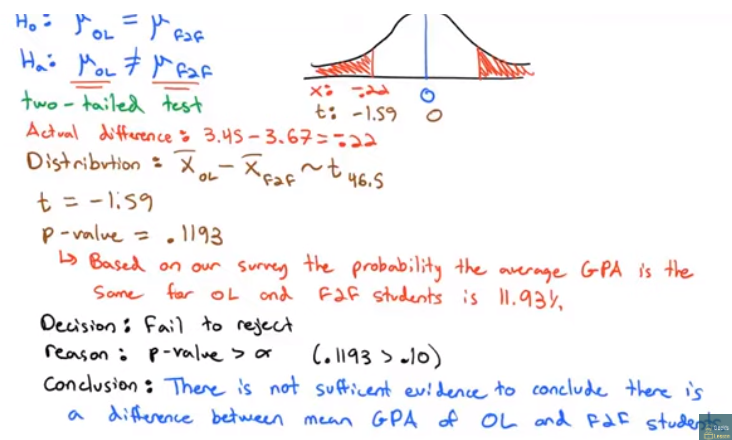 H₀: μ_OL = μ_F2F
Hₐ: μ_OL ≠ μ_F2F
two-tailed test
x: -.22
0
t: -1.59 0
Actual difference: 3.45-3.67=-.22
Distribution: x̄_OL - x̄_F2F ~ t_46.5
t = -1.59
p-value = .1193
↳ Based on our survey the probability the average GPA is the
same for OL and F2F students is 11.93%
Decision: Fail to reject
reason: p-value > α (.1193 > .10)
Conclusion: There is not sufficent evidence to conclude there is
a difference between mean GPA of OL and F2F students